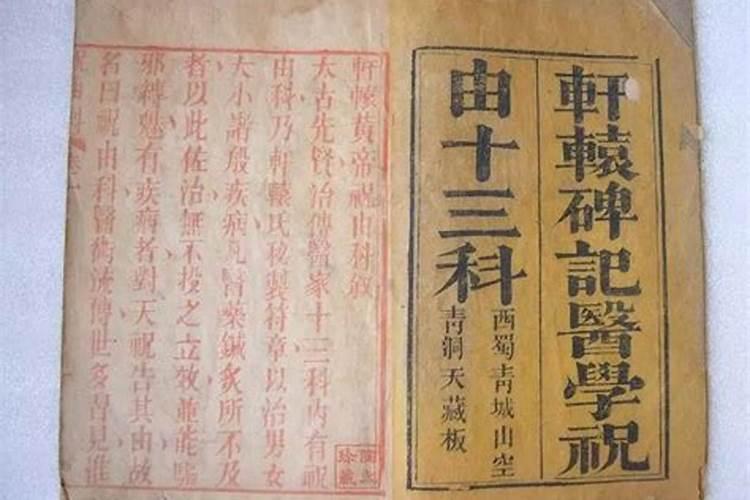 軒轅碑記醫學祝
由十三科
西蜀青城山空
青洞天藏板
軒轅黃帝祝由科敘
太古先賢治傳醫家十三科內有祝
由科乃軒轅氏秘製符章以治男女
大小諸般疾病凡醫藥鍼炙所不及
者以此佐治無不投之立效兼能驅
邪縛魅有疾病者對天祝告其由故
名曰祝由科醫衛流傳世多習見誰